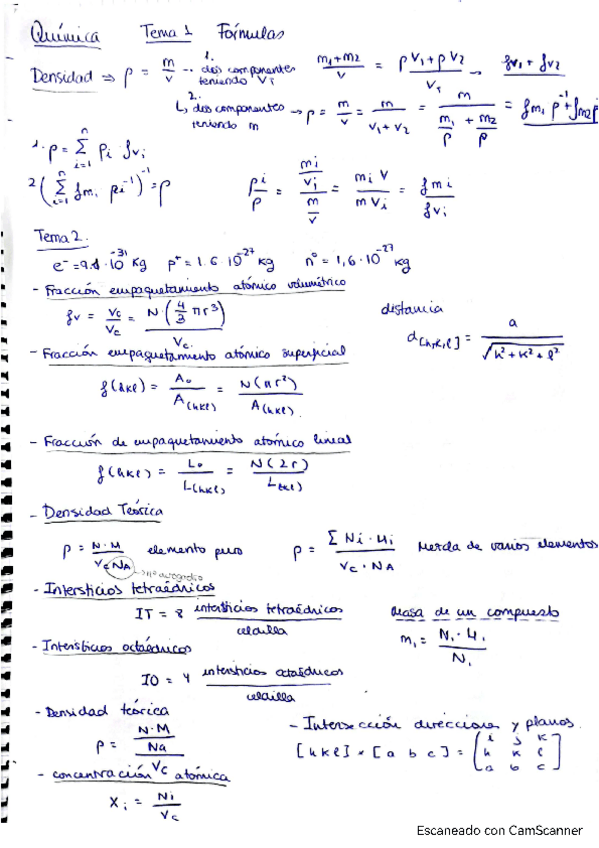 Química Tema 1 Fórmulas
Densidad ⇒ ρ = m/v -- 1. dos componentes teniendo Vi (m1+m2)/v = (ρV1+ρV2)/Vi → fv1 + fv2
2. ↳ dos componentes teniendo m → ρ = m/v = m/(V1+V2) = m/(m1/ρ + m2/ρ) = fm1 ρ^-1 + fm2 ρ
1. ρ = Σ(i=1, n) ρi fvi
2 (Σ(i=1, n) fmi ρi^-1)^-1 = ρ ρi/ρ = (mi/vi)/(m/v) = mi V/m Vi = fmi/fvi
Tema 2.
e- = 9.1·10^-31 kg p+ = 1.6 10^-27 kg nº = 1,6·10^-27 kg
- Fracción empaquetamiento atómico volumétrico
fv = Vc/Vc = N·(4/3 πr^3)/Vc
distancia
d[h,k,l] = a/√(h^2+k^2+l^2)
- Fracción empaquetamiento atómico superficial
f(hkl) = Ao/A(hkl) = N(πr^2)/A(hkl)
- Fracción de empaquetamiento atómico lineal
f(hkl) = Lo/L(hkl) = N(2r)/L(hkl)
- Densidad Teórica
ρ = N·M/Vc NA elemento puro ρ = Σ Ni·Mi/Vc·NA Mezcla de varios elementos
→ nº avogadro
- Intersticios tetraédricos
IT = 8 intersticios tetraédricos/celdilla
Masa de un compuesto
m1 = N1·M1/N1
- Intersticios octaédricos
IO = 4 intersticios octaédricos/celdilla
- Densidad teórica
ρ = (N·M/Na)/Vc
- Intersección direcciones y planos.
[hkl] × [a b c] = [i j k
h k l
a b c]
- concentración atómica
Xi = Ni/Vc
Escaneado con CamScanner